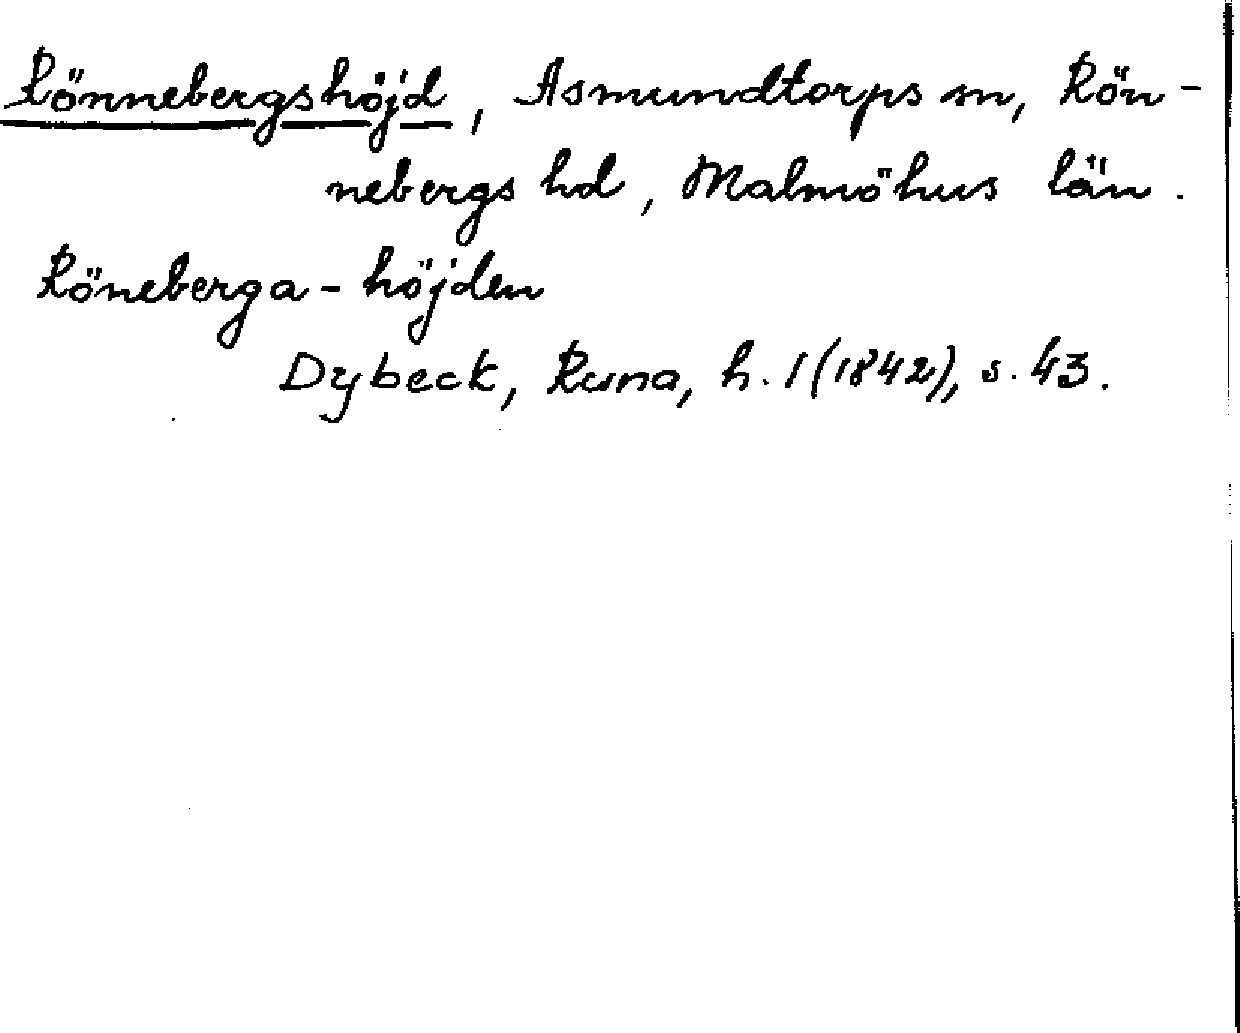 Rönnebergshöjd, Asmundtorps sn, Rön-
nebergs hd, Malmöhus län.
Röneberga-höjden
Dybeck, Runa, h. 1 (1842), s. 43.